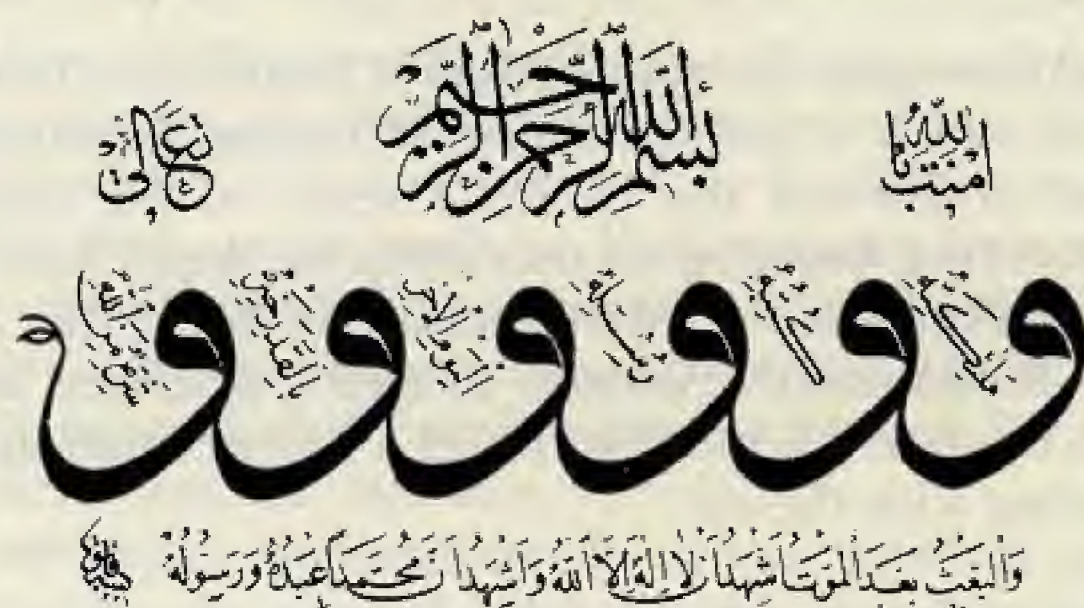 بسم الله الرحمن الرحيم
امنت بالله
تعالى
و ملئكته و كتبه و رسله و اليوم الاخر و بالقدر خيره و شره من الله
وَالْبَعْثُ بَعْدَ الْمَوْتِ اَشْهَدُ اَنْ لَا اِلٰهَ اِلَّا اللهُ وَاَشْهَدُ اَنَّ مُحَمَّدًا عَبْدُهُ وَرَسُولُهُ